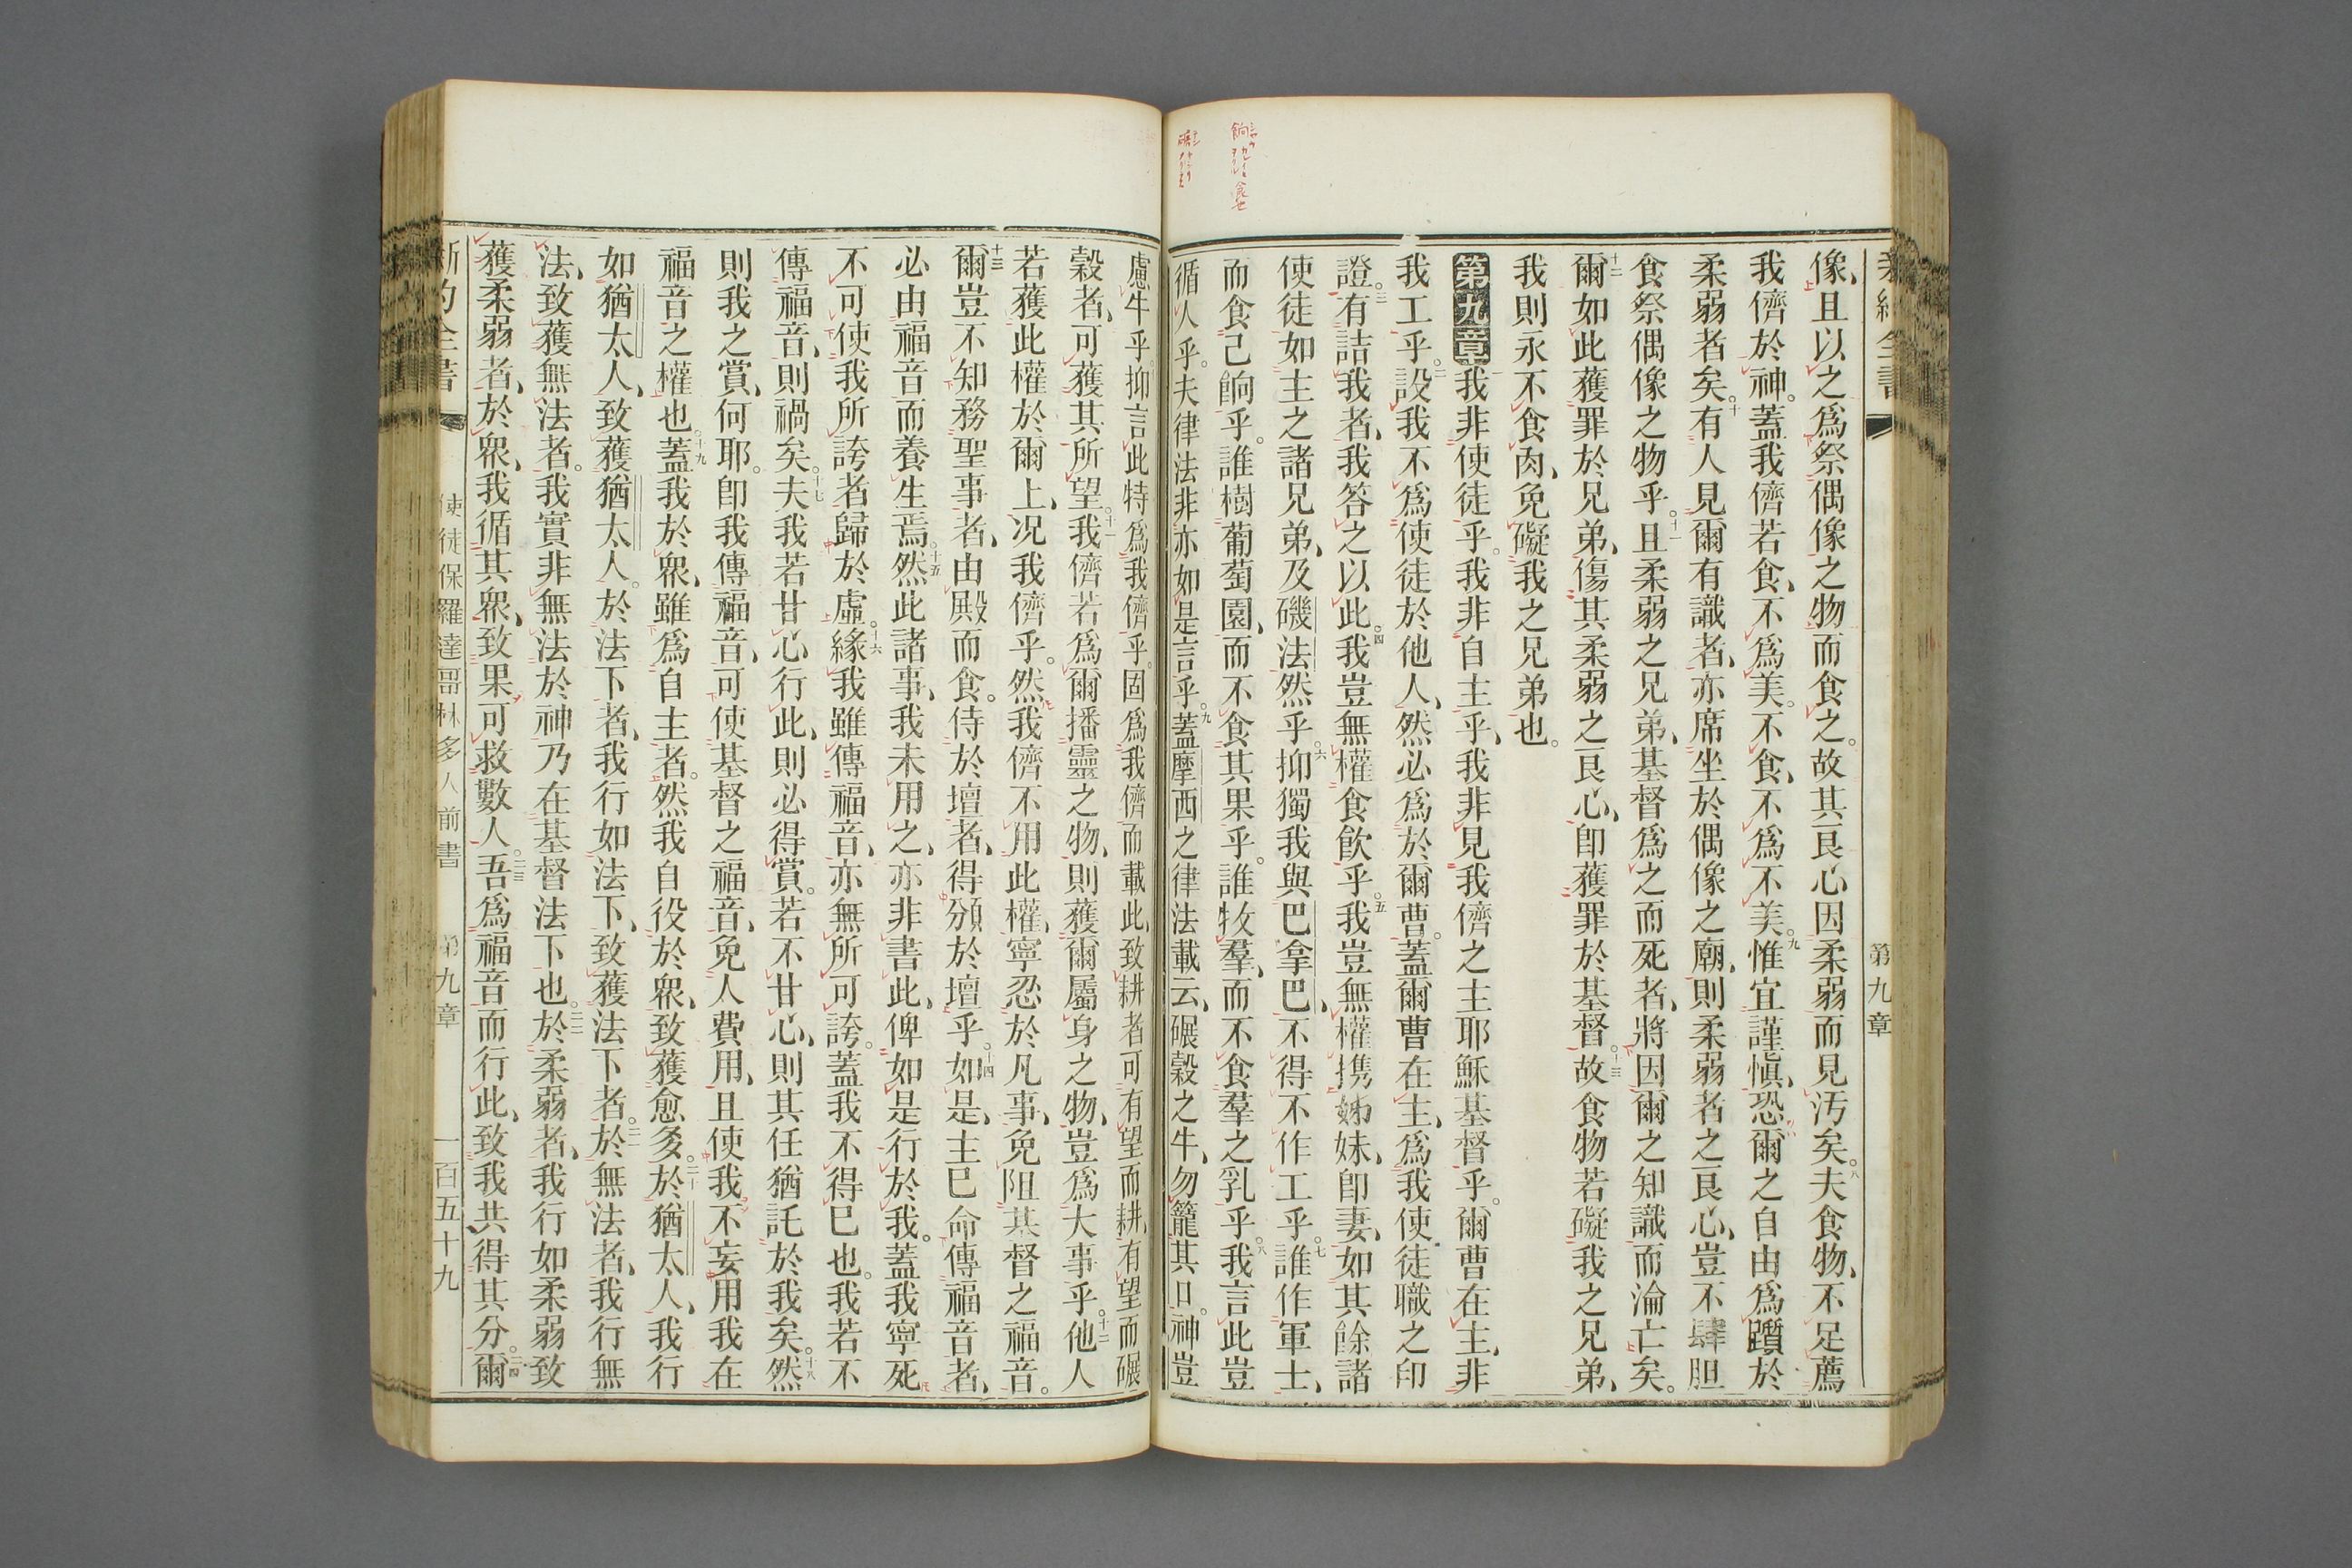 第九章
像、且以之爲祭偶像之物而食之。故其良心因柔弱而見汚矣。八夫食物、不足薦
我儕於神。蓋我儕若食、不爲美。不食、不爲不美。九惟宜謹愼、恐爾之自由爲躓於
柔弱者矣。十有人見爾有識者、亦席坐於偶像之廟、則柔弱者之良心、豈不肆胆
食祭偶像之物乎。十一且柔弱之兄弟、基督爲之而死者、將因爾之知識而淪亡矣。
十二爾如此獲罪於兄弟、傷其柔弱之良心、卽獲罪於基督。十三故食物若礙我之兄弟、
我則永不食肉、免礙我之兄弟也。
第九章一我非使徒乎。我非自主乎、我非見我儕之主耶穌基督乎。爾曹在主、非
我工乎。二設我不爲使徒於他人、然必爲於爾曹。蓋爾曹在主、爲我使徒職之印
證。三有詰我者、我答之以此。四我豈無權食飲乎。五我豈無權携姊妹、卽妻、如其餘諸
使徒如主之諸兄弟、及磯法然乎。六抑獨我與巴拿巴、不得不作工乎。七誰作軍士、
而食己餉乎。誰樹葡萄園、而不食其果乎。誰牧羣、而不食羣之乳乎。八我言此豈
循人乎。夫律法非亦如是言乎。九蓋摩西之律法載云、碾穀之牛、勿籠其口。神豈
慮牛乎。抑言此特爲我儕乎。固爲我儕而載此、致耕者可有望而耕、有望而碾
穀者、可獲其所望。十一我儕若爲爾播靈之物、則獲爾屬身之物、豈爲大事乎。十二他人
若獲此權於爾上、况我儕乎。然我儕不用此權、寧忍於凡事、免阻基督之福音。
十三爾豈不知務聖事者、由殿而食。侍於壇者、得頒於壇乎。十四如是、主已命傳福音者、
必由福音而養生焉。十五然此諸事、我未用之、亦非書此、俾如是行於我。蓋我寧死
不可使我所誇者歸於虛。十六緣我雖傳福音、亦無所可誇。蓋我不得已也。我若不
傳福音、則禍矣。十七夫我若甘心行此、則必得賞。若不甘心、則其任猶託於我矣。十八然
則我之賞、何耶。卽我傳福音、可使基督之福音、免人費用、且使我不妄用我在
福音之權也。十九蓋我於衆、雖爲自主者。然我自役於衆、致獲愈多。二十於猶太人、我行
如猶太人、致獲猶太人。於法下者、我行如法下、致獲法下者。二一於無法者、我行無
法、致獲無法者。我實非無法於神乃在基督法下也。二二於柔弱者、我行如柔弱致
獲柔弱者、於衆、我循其衆、致果可救數人。二三吾爲福音而行此、致我共得其分。二四爾
使徒保羅達哥林多人前書 第九章 一百五十九